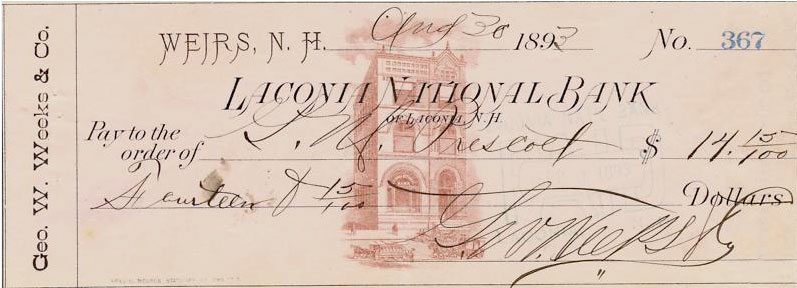 Geo. W. Weeks & Co.
WEIRS, N. H. Aug 30 1893 No. 367
LACONIA NATIONAL BANK
OF LACONIA, N.H.
Pay to the order of Prescott $ 14. 15/100
Fourteen & 15/100 Dollars